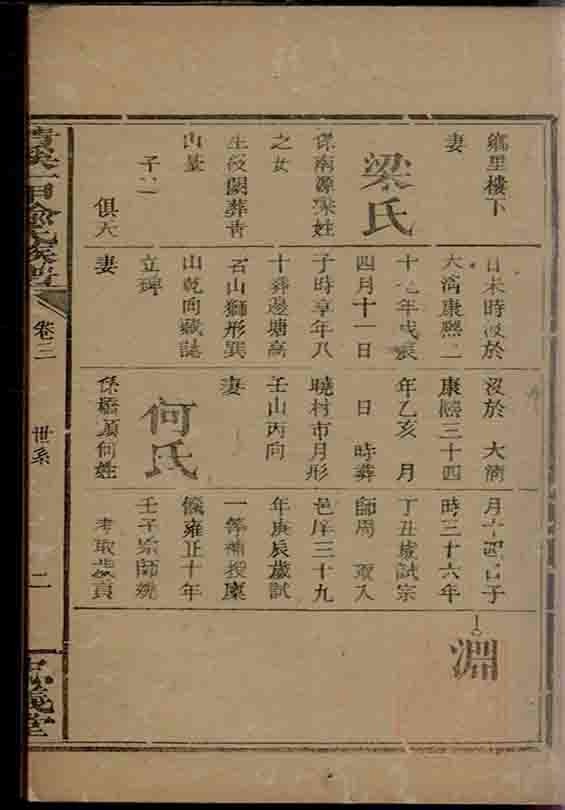 鄉里樓下
妻
梁氏
保南源梁姓
之女
生歿闕葬青
山墓
子二
俱夭
日未時歿於
大清康熙二
十七年戊辰
四月十一日
子時享年八
十葬邊塘高
石山獅形巽
山乾向藏誌
立碑
妻
沒於 大清
康熙三十四
年乙亥 月
日 時葬
曉村市月形
壬山丙向
妻
何氏
保橋頭何姓
月十四日子
時三十六年
丁丑歲試宗
師周 取入
邑庠三十九
年庚辰歲試
一等補授廩
餼雍正十年
壬子宗師姚
考取歲貢
淵
氏族譜
卷三
世系
二
義堂